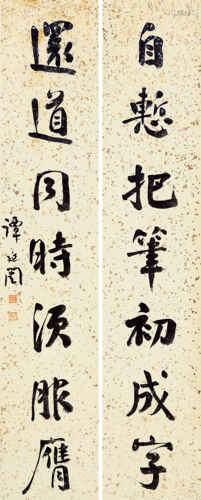 自慙把筆初成字
還道同時須服膺
譚延闓